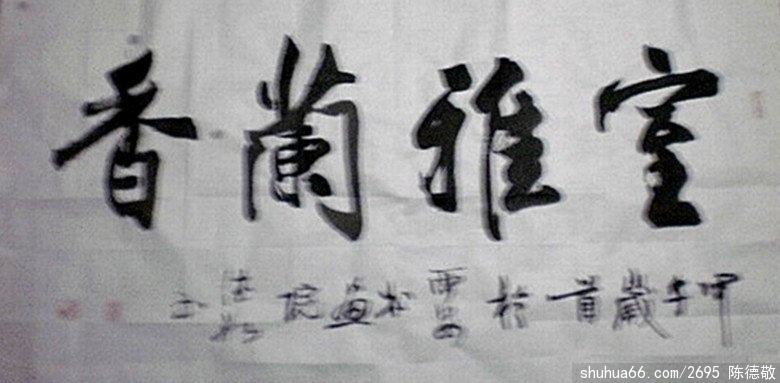 室雅蘭香
甲午歲首於西安松畫院德敬书
shuhua66.com/2695 陈德敬